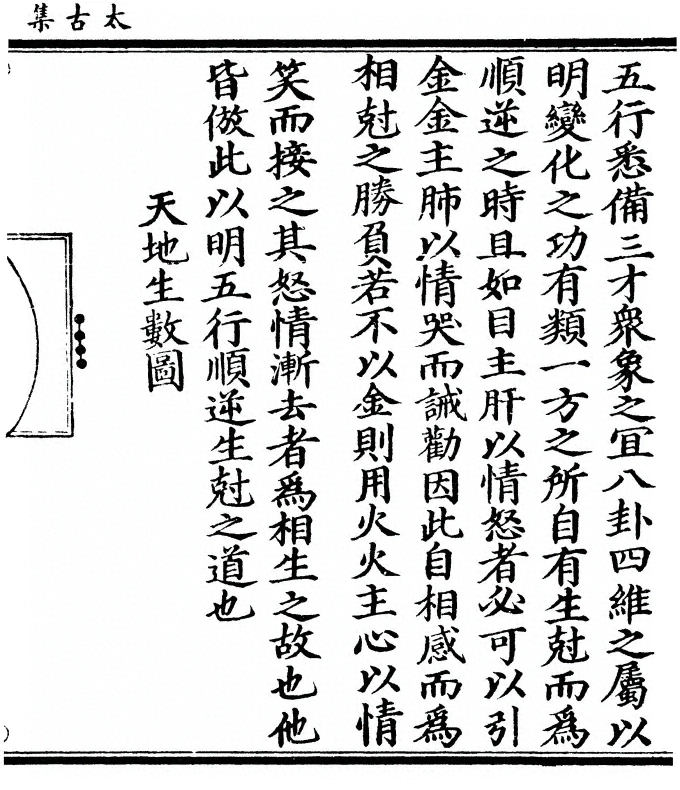 太古集
五行悉備三才衆象之冝八卦四維之屬以
明變化之功有類一方之所自有生尅而爲
順逆之時且如目主肝以情怒者必可以引
金金主肺以情哭而誡勸因此自相感而爲
相尅之勝負若不以金則用火火主心以情
笑而接之其怒情漸去者爲相生之故也他
皆倣此以明五行順逆生尅之道也
天地生數圖